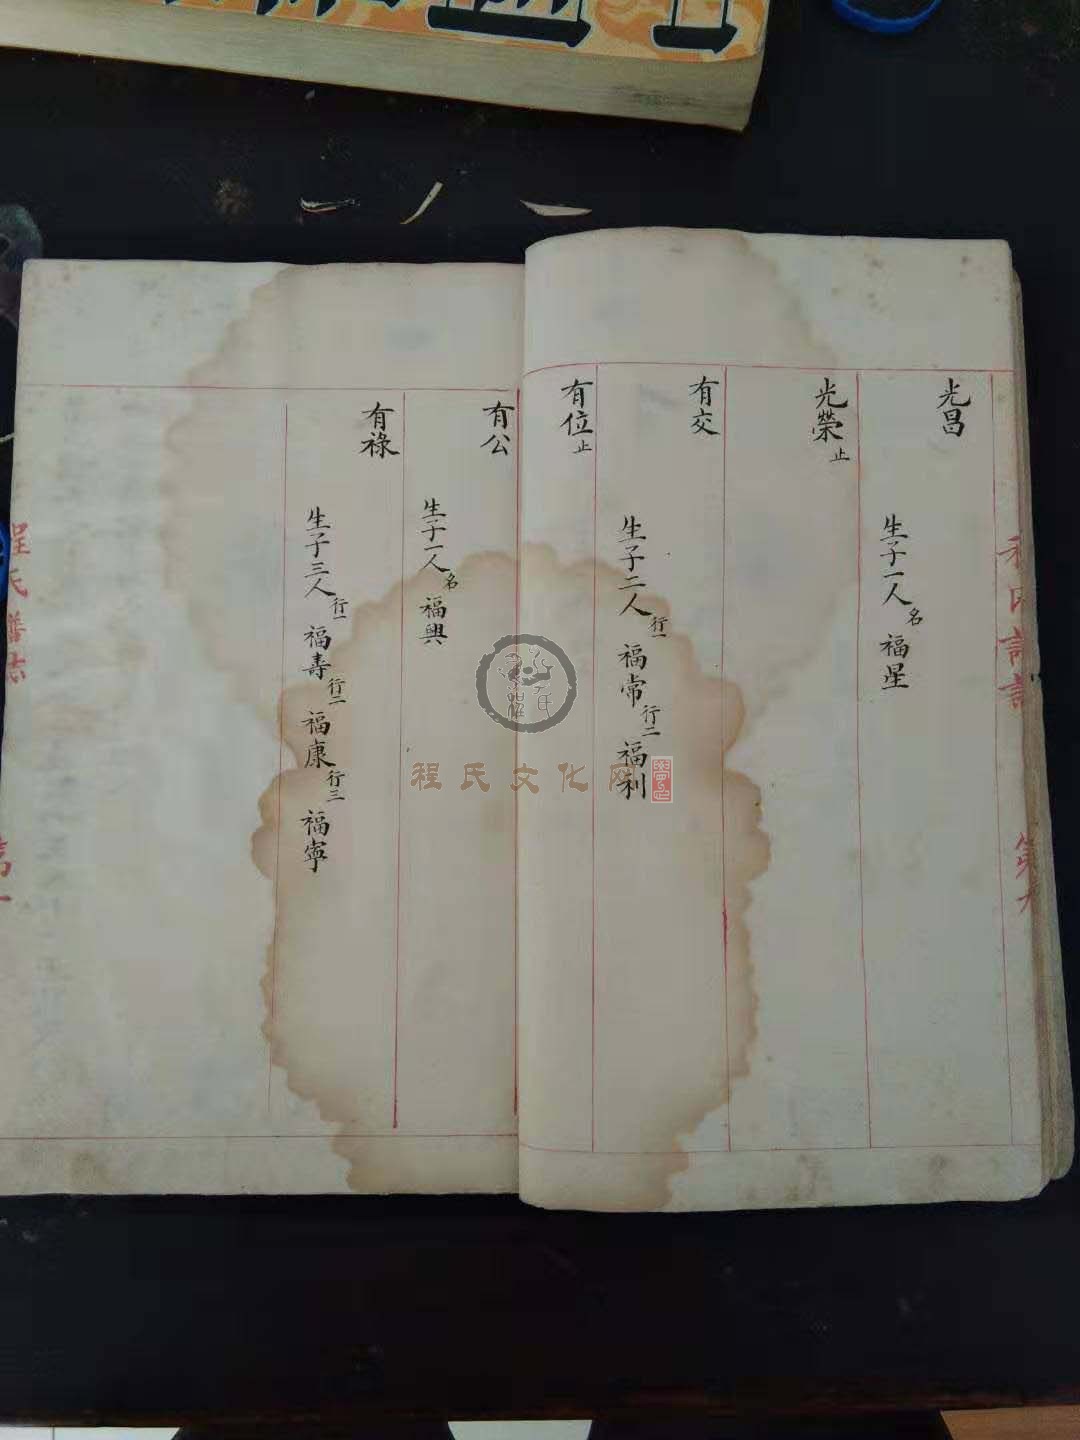 光昌
生子一人名福星
光榮止
有交
生子二人行一福常行二福利
有位止
有公
生子一人名福興
有祿
生子三人行一福壽行二福康行三福寧
程氏譜志
程氏文化网